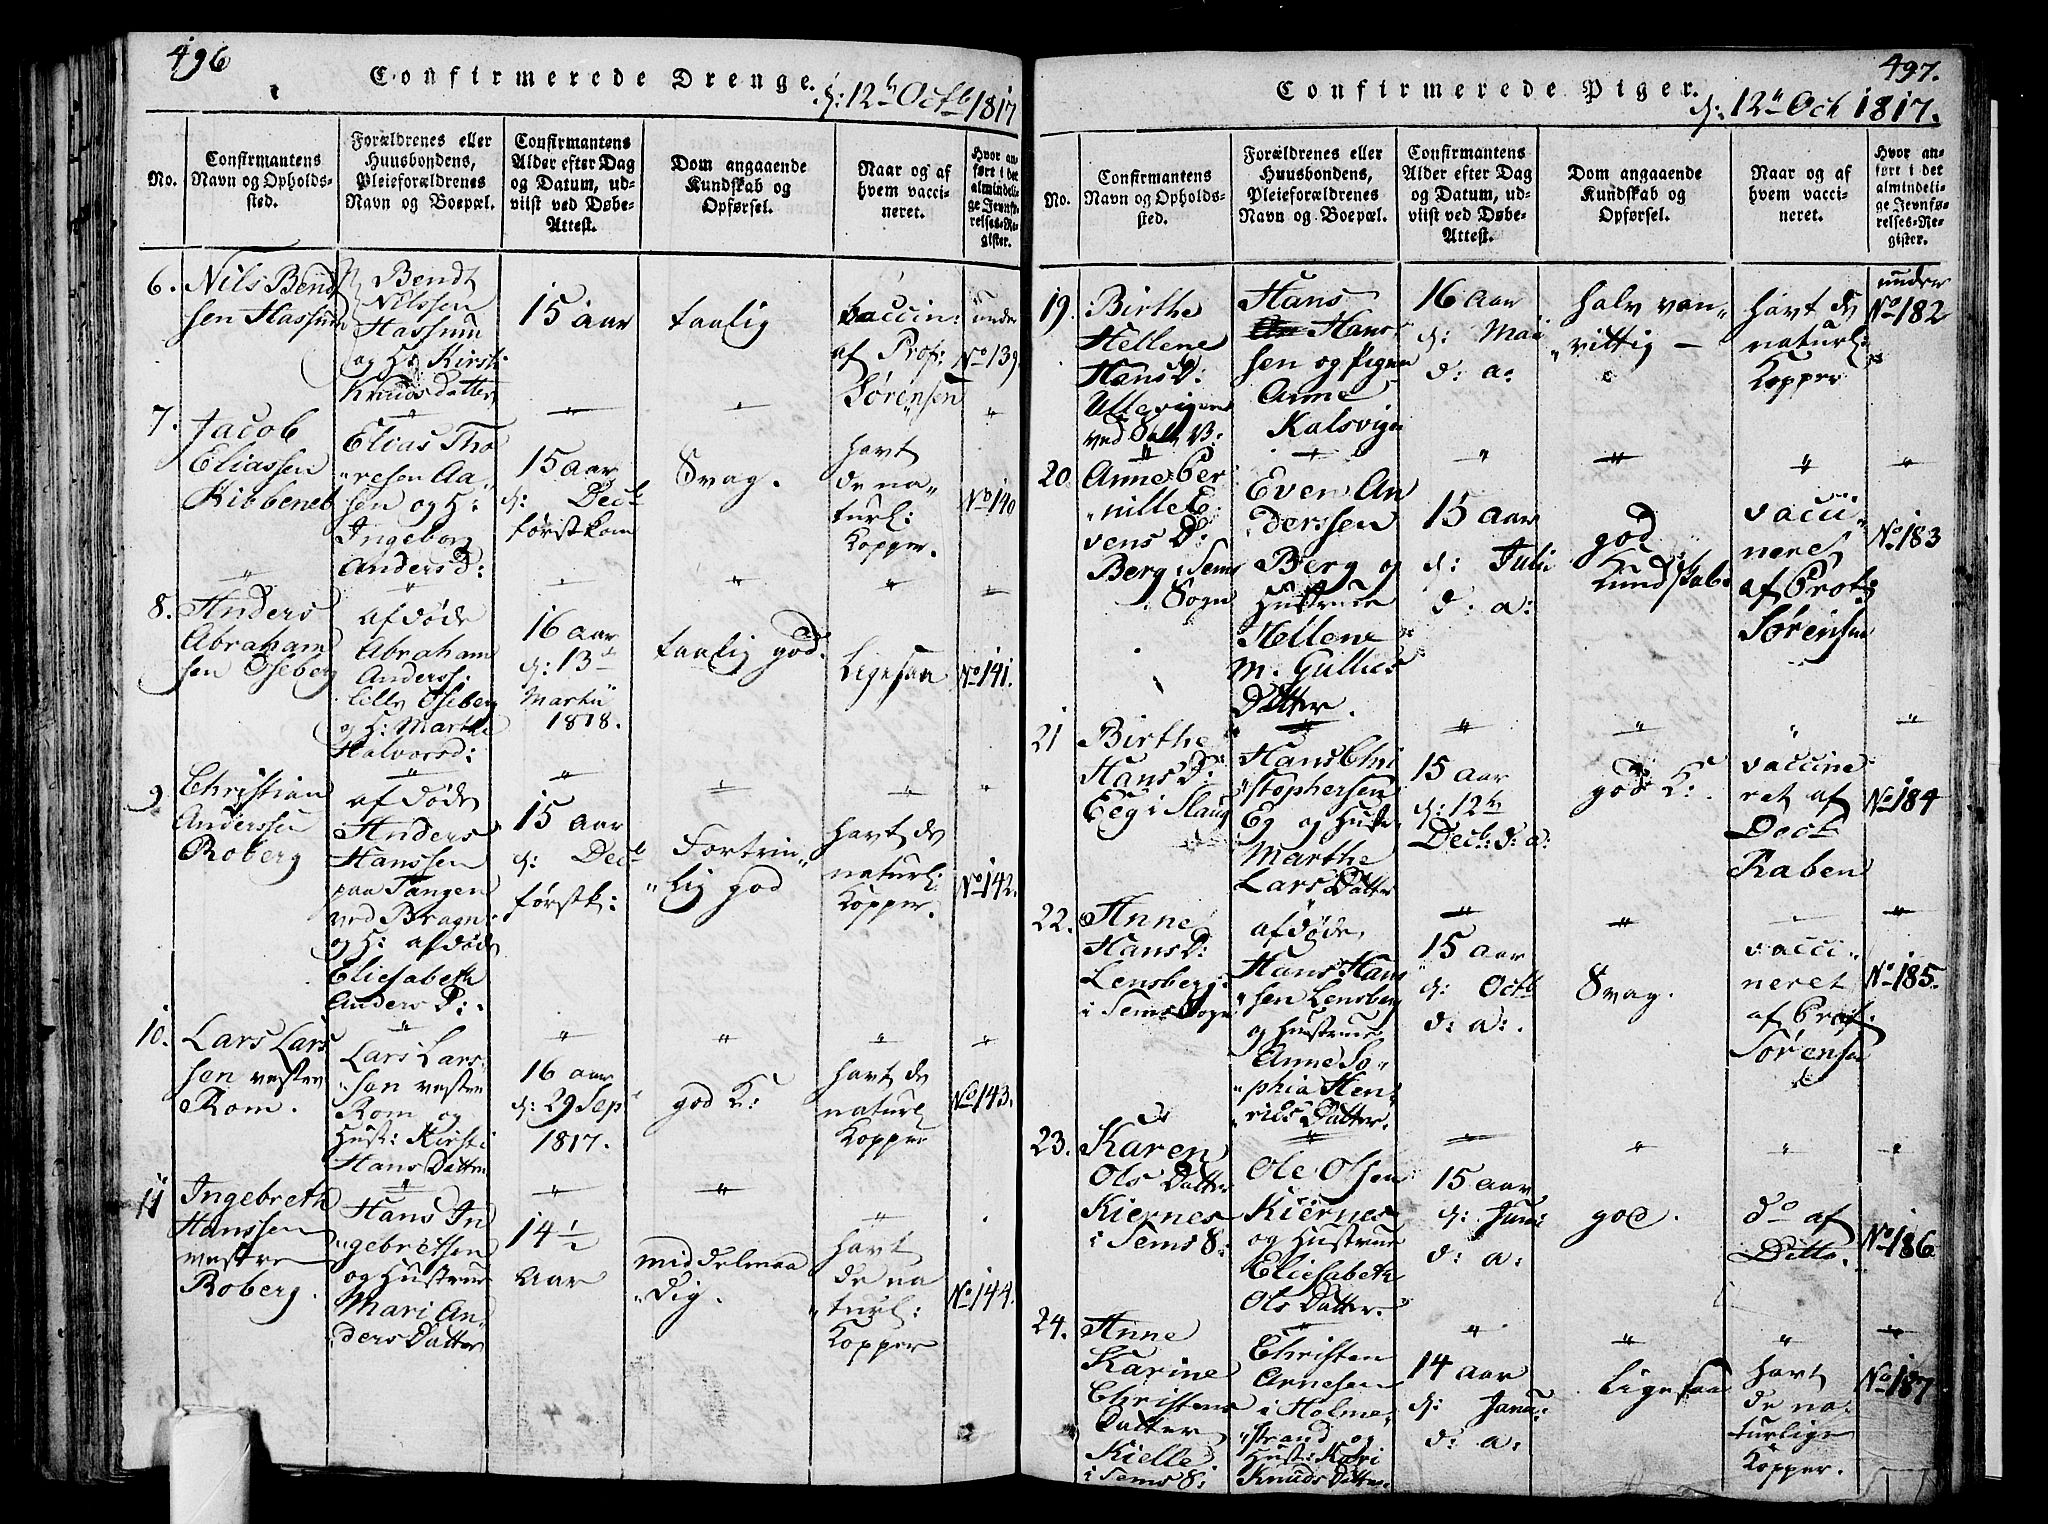 496
Confirmerede Drenge. d: 12te Octb 1817
No.
Confirmantens Navn og Opholds-sted.
Forældrenes eller Huusbondens, Pleieforældrenes Navn og Boepæl.
Confirmantens Alder efter Dag og Datum, ud-viist ved Døbe-Attest.
Dom angaaende Kundskab og Opførsel.
Naar og af hvem vacci-neret.
Hvor an-ført i det almindeli-ge Jevnfø-relses-Re-gister.
6.
Nils Bendt
sen Hassum
Bendt
Nilssen
Hassum
og H: Kirsti
Knuds Datter
15 aar
taalig
vaccin:
af Prof:
Sørensen
under
No 139
7.
Jacob
Eliassen
Kibbenet
Elias Tho
resen Aa-
sen og H:
Ingeborg
Anders d:
15 aar
d: Decb
førstkom
Svag.
havt
de na-
turl:
Kopper.
No 140
8.
Anders
Abraham
sen Oseberg
afdøde
Abraham
Anderss:
lille Oseberg
og H: Marthe
Halvorsd:
16 aar
d: 13de
Martii
1818.
taalig god.
Ligesaa
No 141.
9
Christian
Anderssen
Roberg
afdøde
Anders
Hanssen
paa Tangen
ved Bragn:
og H: afdøde
Eliesabeth
Anders D:
15 aar
d: Decb
førstk:
Fortrin
lig god
havt de
naturl:
Kopper.
No 142.
10.
Lars Lars
sen vestre
Rom.
Lars Lars-
sen vestre
Rom og
Hust: Kirsti
Hans Datter
16 aar
d: 29 Sept
1817.
god K:
havt de
naturl
Kopper
No 143.
11
Ingebreth
Hanssen
vestre
Roberg.
Hans In
gebretsen
og Hustrue
Mari An-
ders Datter
14 1/2
Aar
middelmaa
dig.
havt
de na
turl:
Kopper
No 144.
497.
Confirmerede Piger. d: 12te Oct 1817.
No.
Confirmantens Navn og Opholds-sted.
Forældrenes eller Huusbondens, Pleieforældrenes Navn og Boepæl.
Confirmantens Alder efter Dag og Datum, ud-viist ved Døbe-Attest.
Dom angaaende Kundskab og Opførsel.
Naar og af hvem vacci-neret.
Hvor an-ført i det almindeli-ge Jevnfø-relses-Re-gister.
19.
Birthe
Hellene
Hans D:
Ullevigen
ved
Hans
Hans
sen og Pigen
Anne
Kalsvigen
16 aar
d: Mai
d: a:
halv van-
vittig
havt de
naturl:
Kopper
under
No 182
20.
Anne Per
nille E
vens D:
Berg i Sems
Sogn
Even An
derssen
Berg og
Hustrue
Hellene
M. Gullics
Datter.
15 aar
d: Julii
d. a:
god
Kundskab.
vacci
neret
af Prof:
Sørensen
No 183
21
Birthe
Hans D:
Eeg i Slaug
Hans Chri
stophersen
Eg og Hustr
Marthe
Lars Datter
15 aar
d: 12te
Decb: d: a:
god K:
vaccine
ret af
Doct
Raben
No 184
22.
Anne
Hans D:
Lensberg
i Sems Sogn
afdøde
Hans Hans
sen Lensberg
og Hustrue
Anne So-
phia Hen-
richs Datter.
15 aar
d: Octb
d: a:.
Svag.
vacci-
neret
af Prof:
Sørensen
No 185.
23.
Karen
Ols Datter
Kiernes
i Sems S:
Ole Olsen
Kiernes
og Hustrue
Eliesabeth
Ols Datter.
15 aar
d: Juni
d: a:
god.
do af
Ditto.
No 186
24.
Anne
Karine
Christens
Datter
Kielle
i Sems S:
Christen
Arnesen
i Holme-
strand og
Hust: Kari
Knuds Datter
14 aar
d: Janu:
d: a:
Ligesaa
havt
de na
turlige
Kopper.
No 187